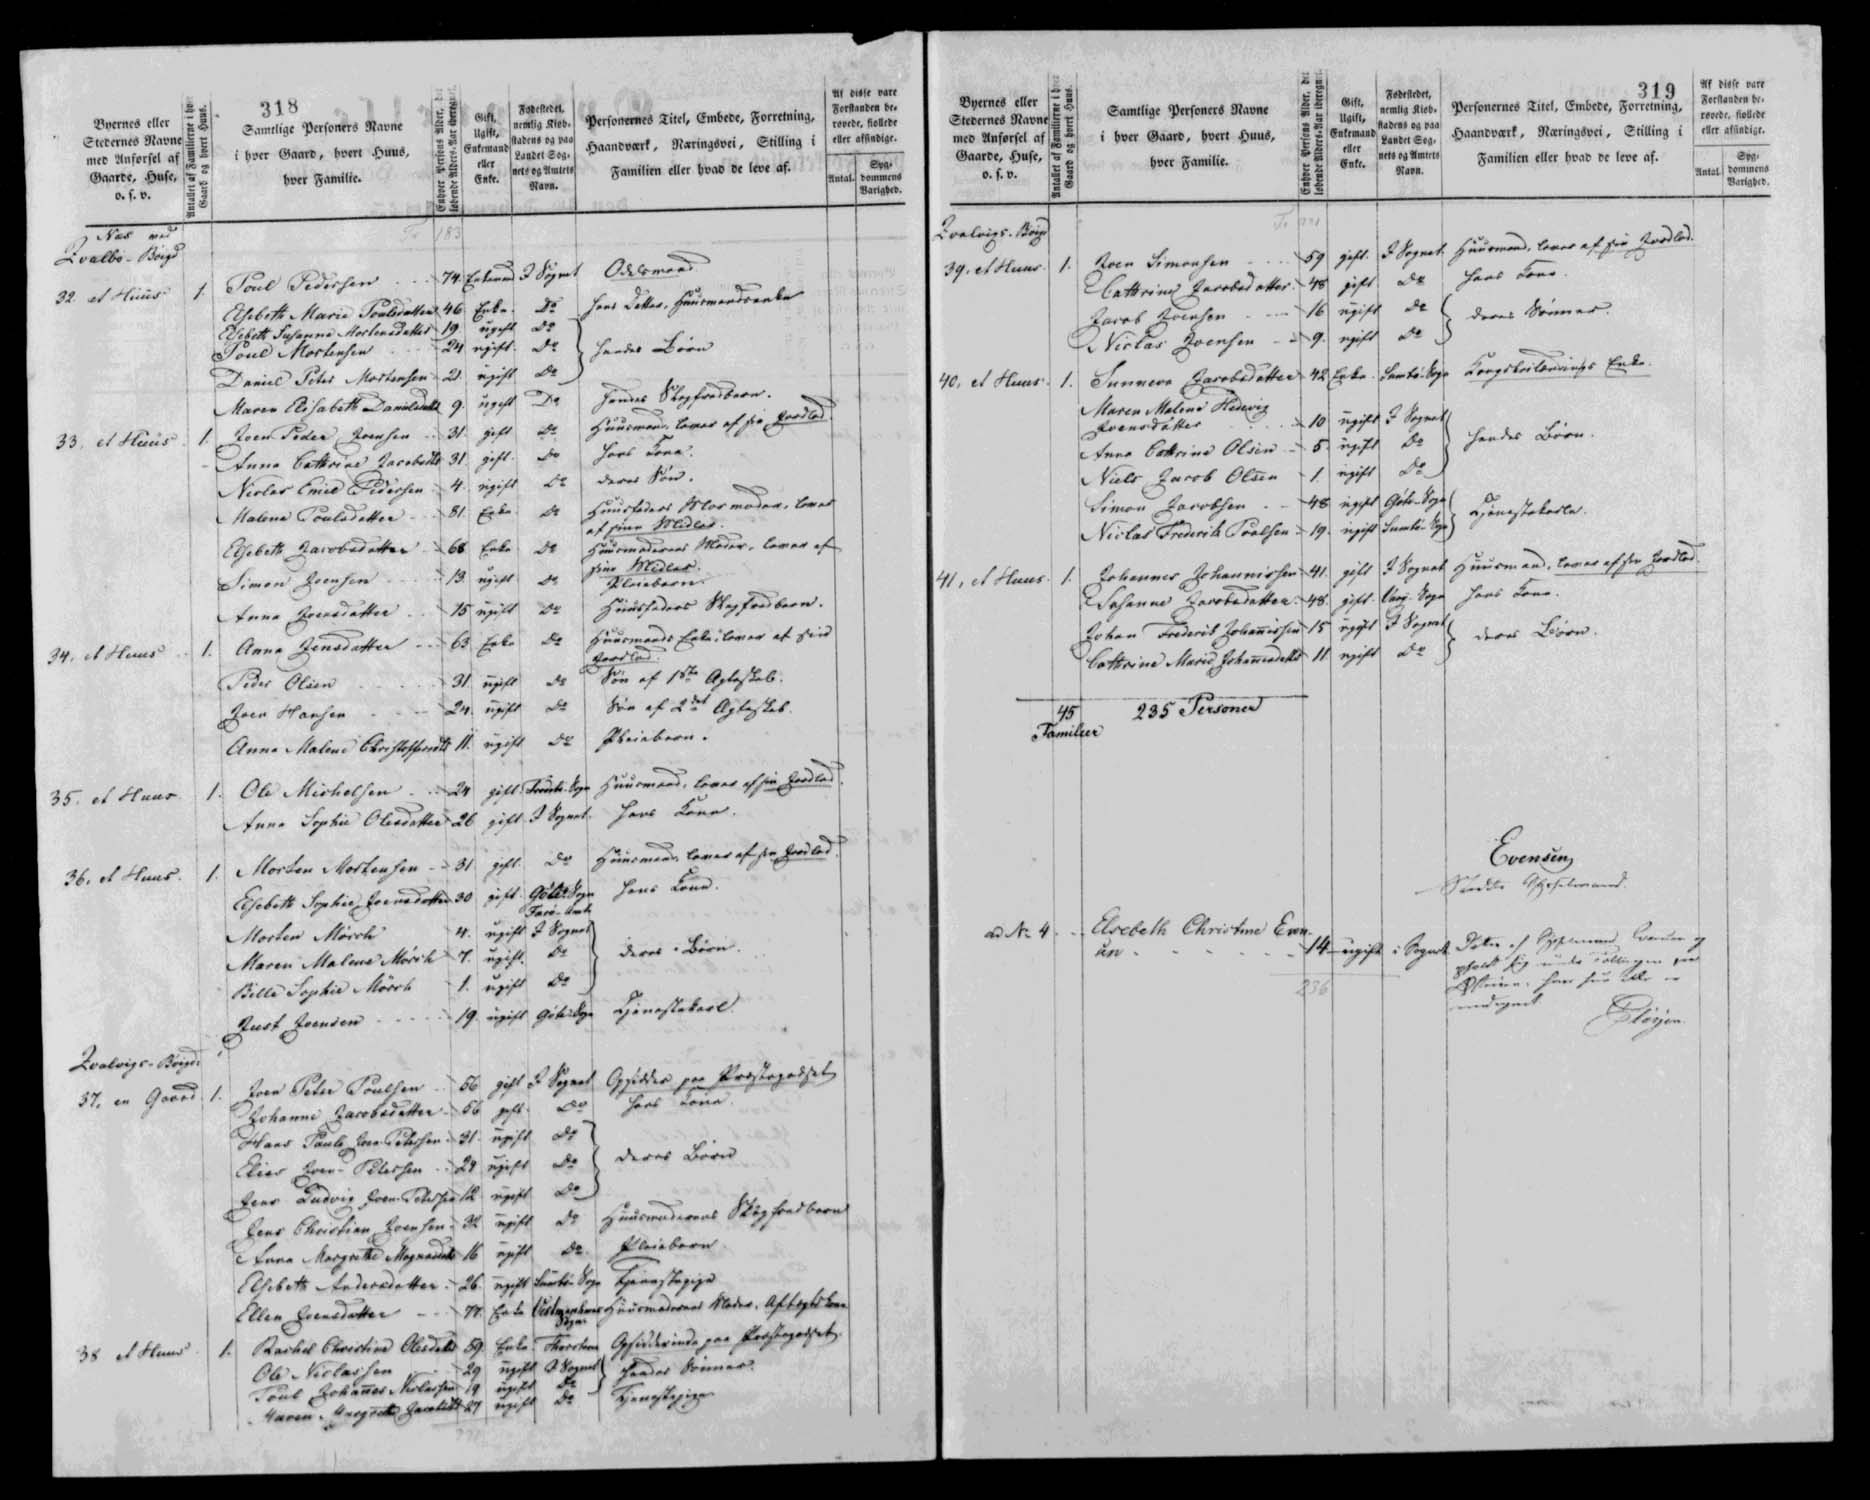 318
Byernes eller
Stedernes Navne
med Anførsel af
Gaarde, Huse,
o. s. v.
Antallet af Familierne i hver
Gaard og hvert Huus.
Samtlige Personers Navne
i hver Gaard, hvert Huus,
hver Familie.
Enhver Persons Alder, det
løbende Alders-Aar iberegnet.
Gift,
Ugift,
Enkemand
eller
Enke.
Fødestedet,
nemlig Kiøb-
stadens og paa
Landet Sog-
nets og Amtets
Navn.
Personernes Titel, Embede, Forretning,
Haandværk, Næringsvei, Stilling i
Familien eller hvad de leve af.
Af disse vare
Forstanden be-
røvede, fiollede
eller afsindige.
Antal.
Syg-
dommens
Varighed.
183
Næs ved
Zvalbø-Bøigd
32 et Huus 1. Poul Pedersen 74. Enkemd I Sognet Odelsmand
Elsebeth Marie Poulsdatter 46 Enke Do hans Datter, Huusmandsenke
Elsebeth Susanne Mortensdatter 19. ugift Do
Poul Mortensen 24 ugift. Do hendes Børn
Daniel Peter Mortensen 21. ugift Do
Maren Elisabeth Danielsdatt 9. ugift Do hendes Slegfredbarn.
33, et Huus 1. Joen Peder Joensen 31. gift Do Huusmand, lever af sin Jordlod
Anna Cathrine Jacobsdtr 31. gift. Do hans Kone.
Niclas Emil Pedersen 4. ugift Do deres Søn.
Malene Poulsdatter 81. Enke Do Huusfaders Mormoder, lever
af sine Midler.
Elsebeth Jacobsdatter 68 Enke Do Huusmoderens Moder, lever af
sine Midler.
Simon Joensen 13. ugift Do Pleiebarn.
Anna Joensdatter 15 ugift Do Huusfaders Slegfredbarn.
34, et Huus 1. Anna Jensdatter 63 Enke Do Huusmands Enke, lever af sin
Jordlod.
Peder Olsen 31 ugift Do Søn af 1ste Ægteskab.
Joen Hansen 24. ugift Do Søn af 2det Ægteskab.
Anna Malene Christoffersdtr 11. ugift Do Pleiebarn.
35. et Huus 1. Ole Michelsen 24 gift Sogn Huusmand, lever af sin Jordlod.
Anna Sophie Olesdatter 26 gift I Sognet. hans Kone.
36, et Huus. 1. Morten Mortensen 31 gift. Do Huusmand, lever af sin Jordlod.
Elsebeth Sophie Joensdatter 30 gift Gøte-Sogn hans Kone.
Færø-Amt
Morten Mørch 4. ugift I Sognet
Maren Malene Mørch 7. ugift. Do deres Børn.
Bille Sophie Mørch 1. ugift Do
Just Joensen 19. ugift Gøte-Sogn Tjenestekarl.
Zvalvigs-Bøigd
37, en Gaard 1. Joen Peter Poulsen 56 gift I Sognet Opsidder paa Præstegodset
Johanne Jacobsdatter 56 gift. Do hans Kone.
Hans Pauli Joen-Petersen 31. ugift Do
Elias Joen-Petersen 29 ugift Do deres Børn
Jens Ludvig Joen-Petersen 12 ugift Do
Jens Christian Joensen 32 ugift Do Huusmoderens Slegfredbarn
Anna Margrethe Magnusdtr 16 ugift Do. Pleiebarn.
Elsebeth Andersdatter 26. ugift Sumbø-Sogn Tjenestepige
Ellen Joensdatter 77. Enke Vestmanhavns Huusmoderens Moder, Aftægtskone
Sogn
38 et Huus 1. Rachel Christine Olesdatt 59. Enke Thorshavn Opsidderinde paa Præstegodset.
Ole Niclassen 29 ugift I Sognet hendes Sønner.
Poul Johannes Niclassen 19 ugift Do
Maren Margrete Jacobsdtr 27 ugift Do Tjenestepige
319
Byernes eller
Stedernes Navne
med Anførsel af
Gaarde, Huse,
o. s. v.
Antallet af Familierne i hver
Gaard og hvert Huus.
Samtlige Personers Navne
i hver Gaard, hvert Huus,
hver Familie.
Enhver Persons Alder, det
løbende Alders-Aar iberegnet.
Gift,
Ugift,
Enkemand
eller
Enke.
Fødestedet,
nemlig Kiøb-
stadens og paa
Landet Sog-
nets og Amtets
Navn.
Personernes Titel, Embede, Forretning,
Haandværk, Næringsvei, Stilling i
Familien eller hvad de leve af.
Af disse vare
Forstanden be-
røvede, fiollede
eller afsindige.
Antal
Syg-
dommens
Varighed.
Zvalvigs-Bøigd
39, et Huus 1. Joen Simonsen 59 gift. I Sognet. Huusmand, lever af sin Jordlod.
Cathrine Jacobsdatter 48 gift. Do hans Kone.
Jacob Joensen 16 ugift Do deres Sønner.
Niclas Joensen 9. ugift Do
40, et Huus. 1. Sunneva Jacobsdatter 42 Enke Sumbø-Sogn Enke.
Maren Malene Hedevig
Joensdatter 10 ugift I Sognet
Anna Cathrine Olsen 5. ugift Do hendes Børn.
Niels Jacob Olsen 1. ugift Do
Simon Jacobsen 48 ugift Gøte-Sogn Tjenestekarle.
Niclas Frederik Poulsen 19. ugift Sumbø-Sogn
41, et Huus. 1. Johannes Johannissen 41. gift I Sognet Huusmand, lever af sin Jordlod.
Susanne Jacobsdatter 48. gift. Sogn hans Kone.
Johan Frederik Johannissen 15 ugift I Sognet deres Børn.
Cathrine Marie Johannesdtr 11 ugift Do
45 235 Personer
Familier
Evensen
Sysselmand.
ad No 4 Elsebeth Christine Even-
sen 14 ugift i Sognet Datter af Sysselmand Evensen og
236